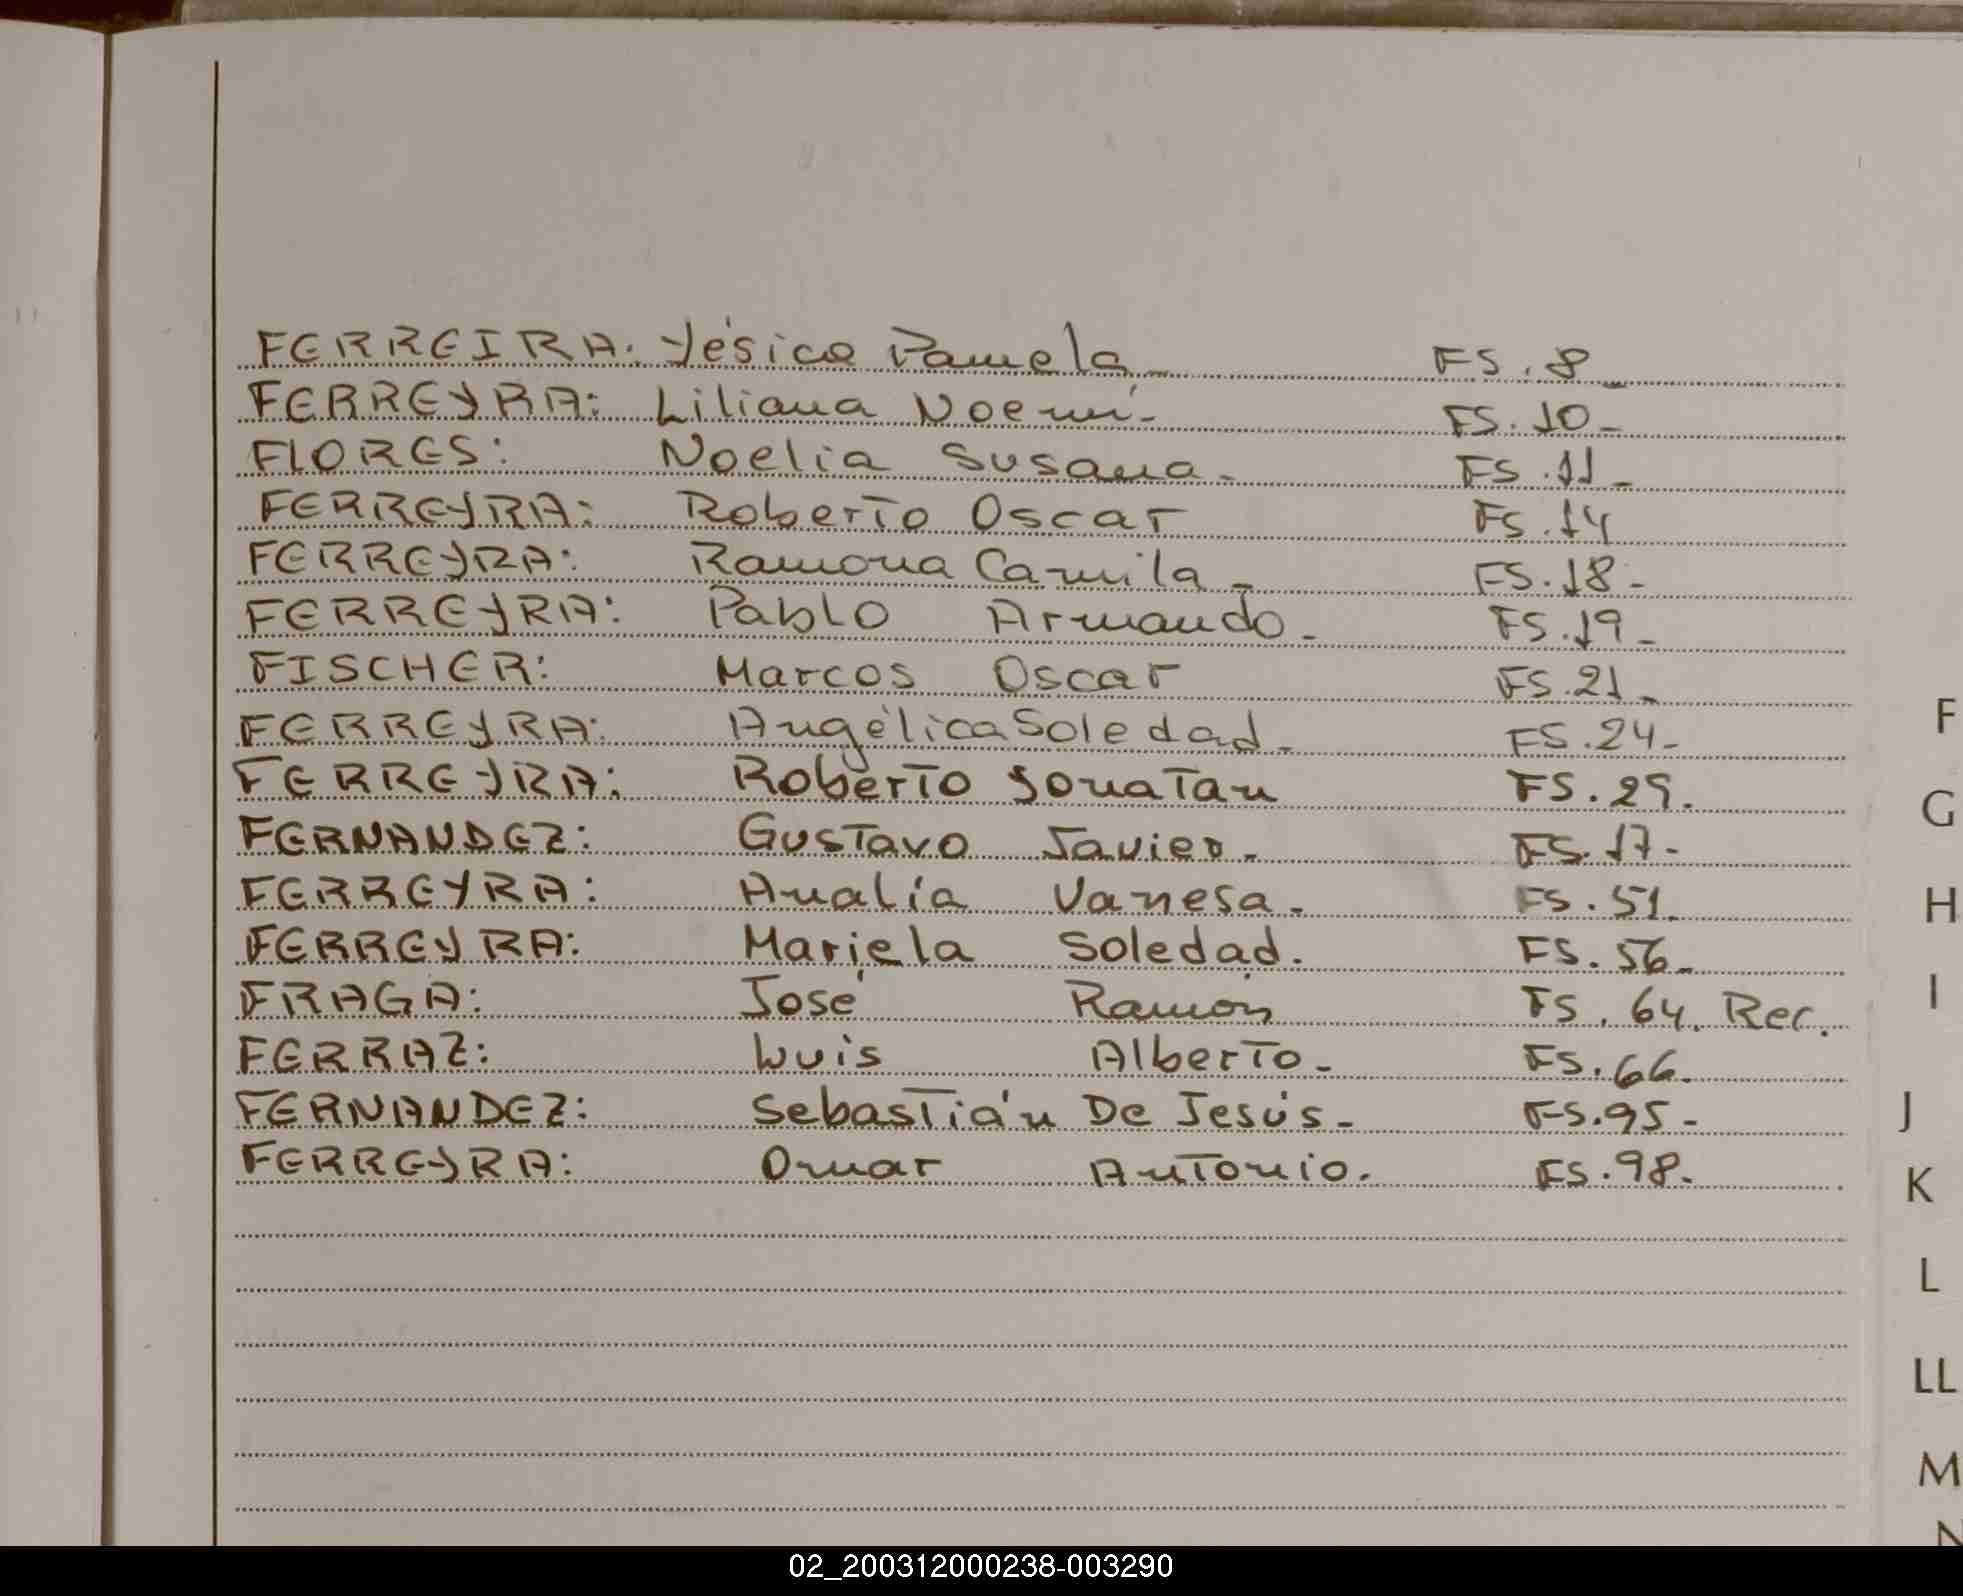 FERREIRA: Yésica Pamela - FS. 8 -
FERREYRA: Liliana Noemí - FS. 10 -
FLORES: Noelia Susana - FS. 11 -
FERREYRA: Roberto Oscar FS. 14
FERREYRA: Ramona Camila - FS. 18 -
FERREYRA: Pablo Armando - FS. 19 -
FISCHER: Marcos Oscar FS. 21 -
FERREYRA: Angélica Soledad - FS. 24 -
FERREYRA: Roberto Jonatan FS. 29.
FERNANDEZ: Gustavo Javier - FS. 17 -
FERREYRA: Analía Vanesa - FS. 51.
FERREYRA: Mariela Soledad. FS. 56 -
FRAGA: José Ramón FS. 64. Rec.
FERRAZ: Luis Alberto - FS. 66 -
FERNANDEZ: Sebastián De Jesús - FS. 95 -
FERREYRA: Omar Antonio. FS. 98 -
F
G
H
I
J
K
L
LL
M
N
02_200312000238-003290